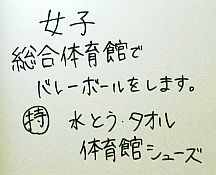 女子
総合体育館で
バレーボールをします。
㊕ 水とう・タオル
体育館シューズ